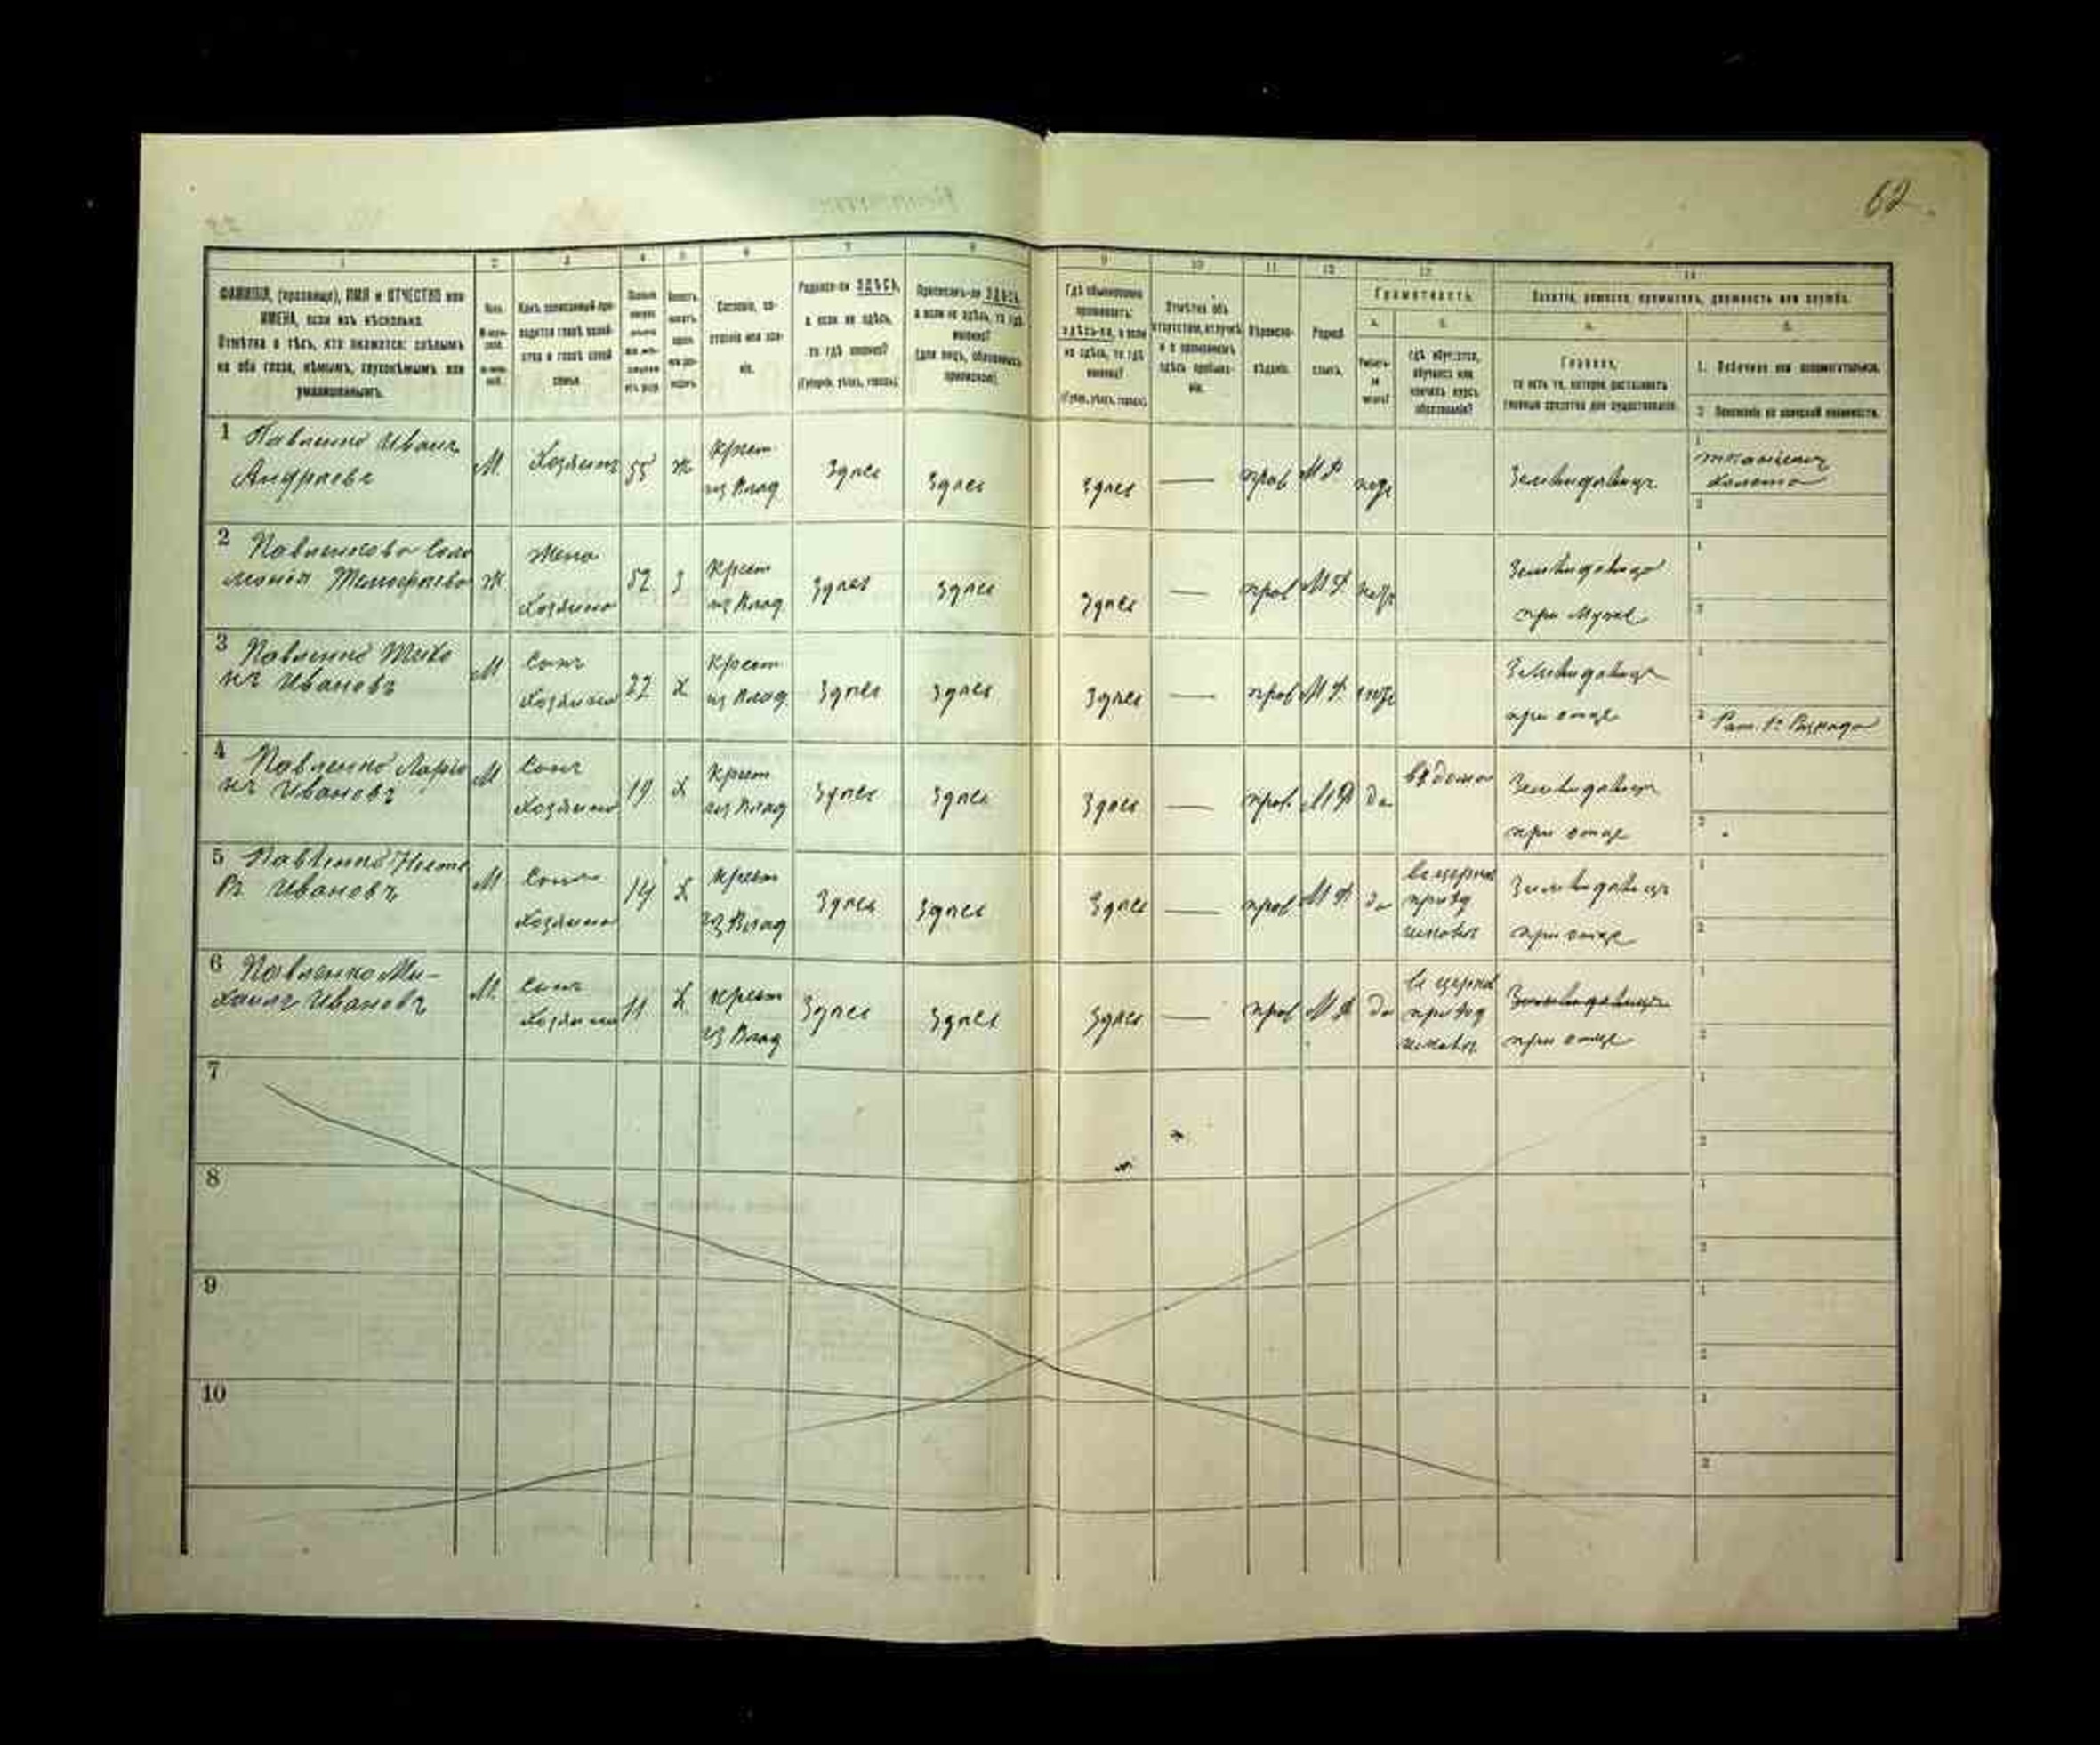 62.
1 2 3 4 5 6 7 8 9 10 11 12 13 14
ФАМИЛІЯ, (прозвище), ИМЯ и ОТЧЕСТВО или ИМЕНА, если ихъ нѣсколько.
Отмѣтка о тѣхъ, кто окажется: слѣпымъ на оба глаза, нѣмымъ, глухонѣмымъ или умалишеннымъ.
Полъ.
Какъ записанный приходится главѣ хозяйства и главѣ своей семьи.
Сословіе, состояніе или званіе.
Родился-ли ЗДѢСЬ, а если не здѣсь, то гдѣ именно?
(Губернія, уѣздъ, городъ).
Приписанъ-ли ЗДѢСЬ, а если не здѣсь, то гдѣ именно?
(для лицъ, обязанныхъ припискою).
Гдѣ обыкновенно проживаетъ: здѣсь-ли, а если не здѣсь, то гдѣ именно?
(Губер., уѣздъ, городъ).
Отмѣтка объ отсутствіи, отлучкѣ и о временномъ здѣсь пребываніи.
Вѣроисповѣданіе.
Родной языкъ.
Грамотность.
а.
Умѣетъ-ли читать?
б.
Гдѣ обучается, обучался или кончилъ курсъ образованія?
Занятіе, ремесло, промыселъ, должность или служба.
а.
Главное,
то есть то, которое доставляетъ главныя средства для существованія.
б.
1. Побочное или вспомогательное.
2. Положеніе по воинской повинности.
1 Павленко Иванъ
Андреевъ
М. Хозяинъ 55 ж Крест
из Влад Здѣсь Здѣсь Здѣсь — прав М Р Земледѣлецъ
1
2
2 Павленкова Соло
монія М Ж. Жена
Хозяина 52 з Крест
из Влад Здѣсь Здѣсь Здѣсь — прав М Р Земледѣлецъ
при Мужѣ
1
2
3 Павленко Тихо
нъ Ивановъ М Сынъ
Хозяина 22 х Крест
из Влад Здѣсь Здѣсь Здѣсь — прав М Р Земледѣлецъ
при отцѣ
1
2 Рат. 1г Разряда
4 Павленко Ларіо
нъ Ивановъ М Сынъ
Хозяина 19 х Крест
из Влад Здѣсь Здѣсь Здѣсь — прав. М Р да въ дома Земледѣлецъ
при отцѣ
1
2
5 Павленко Несте
ръ Ивановъ М Сынъ
Хозяина 14 х Крест
из Влад Здѣсь Здѣсь Здѣсь — прав М Р да въ церков
приход
школѣ Земледѣлецъ
при отцѣ
1
2
6 Павленко Ми-
хаилъ Ивановъ М. Сынъ
Хозяина 11 х. Крест
из Влад Здѣсь Здѣсь Здѣсь — прав М Р да въ церков
приход
школѣ Земледѣлецъ
при отцѣ
1
2
7
1
2
8
1
2
9
1
2
10
1
2